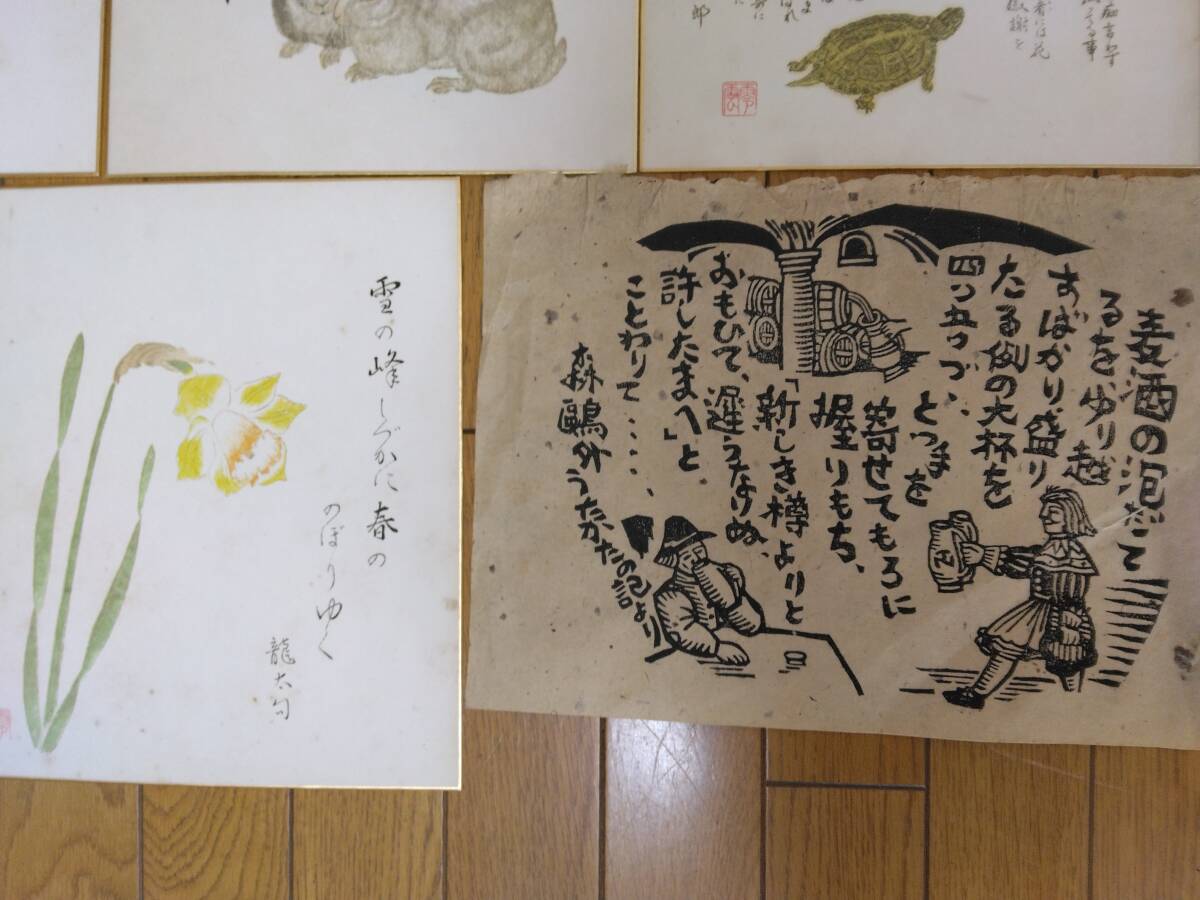 郎
には花
感謝を
雪の峰しづかに春の
のぼりゆく
龍太句
麦酒の泡だて
るを、ゆり越
すばかり盛り
たる例の大杯を
四ツ五ツづゝ、
とつ手を
寄せてもろに
握りもち、
「新しき樽よりと
おもひて、遅うなりぬ、
許したまへ」と
ことわりて・・・・、
森鷗外うたかたの記より